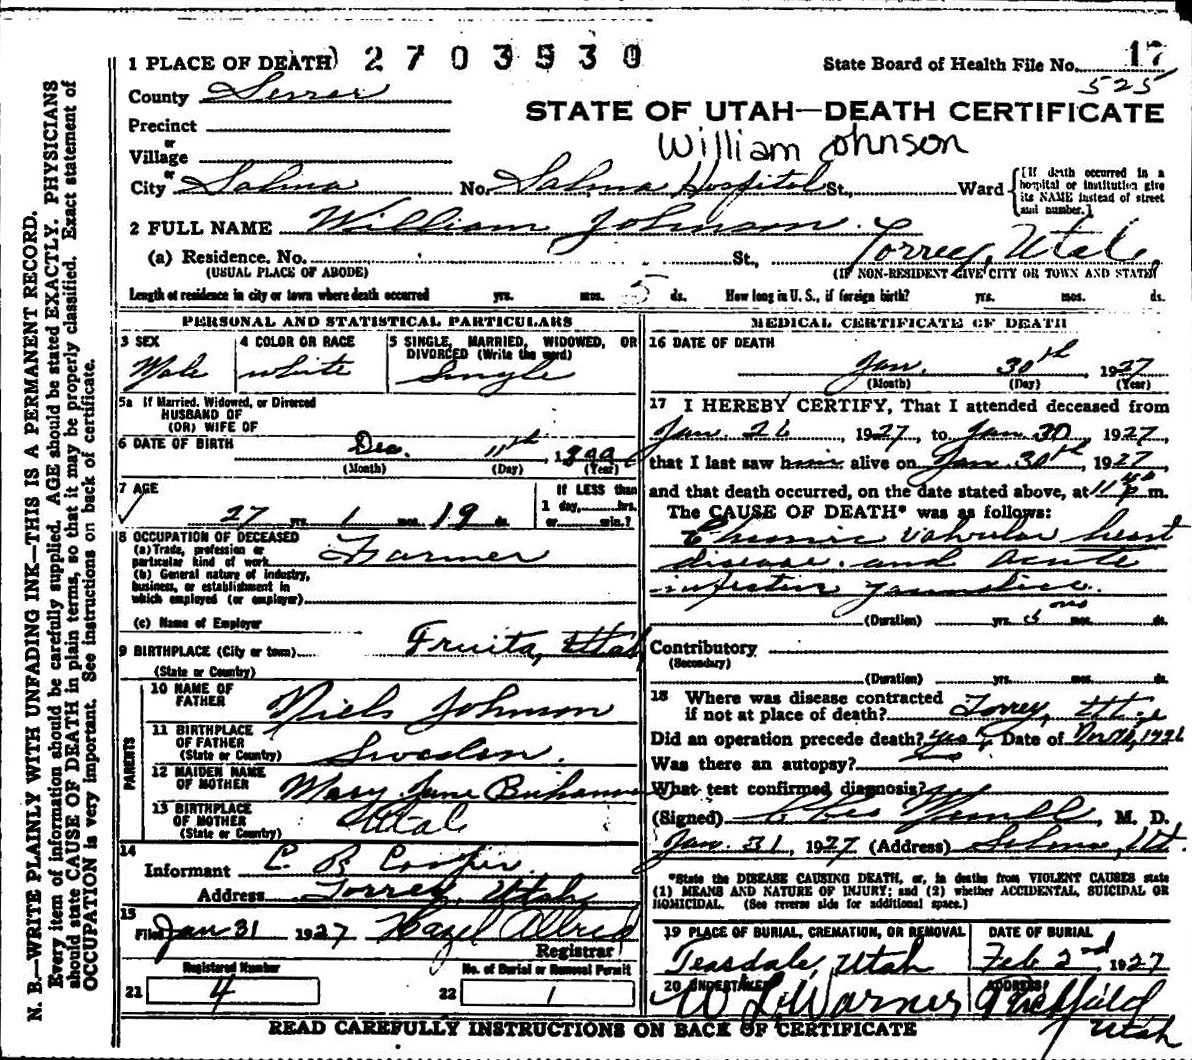 1 PLACE OF DEATH) 2 7 0 3 5 3 0
State Board of Health File No. 17
525
County Sevier
STATE OF UTAH—DEATH CERTIFICATE
Precinct
or
Village
William Johnson
or
City Salina No. Salina Hospital St., Ward
[If death occurred in a
hospital or institution give
its NAME instead of street
and number.]
2 FULL NAME William Johnson.
(a) Residence. No. St., Torrey, Utah,
(USUAL PLACE OF ABODE) (IF NON-RESIDENT GIVE CITY OR TOWN AND STATE)
Length of residence in city or town where death occurred yrs. mos. 5 ds. How long in U. S., if foreign birth? yrs. mos. ds.
PERSONAL AND STATISTICAL PARTICULARS
3 SEX
Male
4 COLOR OR RACE
white
5 SINGLE, MARRIED, WIDOWED, OR
DIVORCED (Write the word)
Single
5a If Married, Widowed, or Divorced
HUSBAND OF
(OR) WIFE OF
6 DATE OF BIRTH Dec. 11th, 1899
(Month) (Day) (Year)
7 AGE
27 yrs. 1 mos. 19 ds.
If LESS than
1 day, hrs.
or min.?
8 OCCUPATION OF DECEASED
(a) Trade, profession or
particular kind of work Farmer
(b) General nature of industry,
business, or establishment in
which employed (or employer)
(c) Name of Employer
9 BIRTHPLACE (City or town) Fruita, Utah
(State or Country)
PARENTS
10 NAME OF
FATHER Niels Johnson
11 BIRTHPLACE
OF FATHER
(State or Country) Sweden.
12 MAIDEN NAME
OF MOTHER Mary Jane
13 BIRTHPLACE
OF MOTHER
(State or Country) Utah
14
Informant C B Cooper
Address Torrey, Utah
15
Filed Jan 31 1927 Hazel Allred
Registrar
Registered Number
21 4
No. of Burial or Removal Permit
22 1
MEDICAL CERTIFICATE OF DEATH
16 DATE OF DEATH
Jan. 30th 1927
(Month) (Day) (Year)
17 I HEREBY CERTIFY, That I attended deceased from
Jan. 26, 1927, to Jan 30, 1927,
that I last saw him alive on Jan. 30th, 1927,
and that death occurred, on the date stated above, at 11 p m.
The CAUSE OF DEATH* was as follows:
Chronic valvular heart
disease. and acute
infective
(Duration) yrs. mos. ds.
Contributory
(Secondary)
(Duration) yrs. mos. ds.
18 Where was disease contracted
if not at place of death? Torrey, Utah
Did an operation precede death? yes Date of 1926
Was there an autopsy?
What test confirmed diagnosis?
(Signed) M. D.
Jan. 31, 1927 (Address) Salina, Ut.
*State the DISEASE CAUSING DEATH, or, in deaths from VIOLENT CAUSES state
(1) MEANS AND NATURE OF INJURY; and (2) whether ACCIDENTAL, SUICIDAL OR
HOMICIDAL. (See reverse side for additional space.)
19 PLACE OF BURIAL, CREMATION, OR REMOVAL
Teasdale, Utah
DATE OF BURIAL
Feb 2nd, 1927
20 UNDERTAKER
W L Warner
ADDRESS
Richfield
Utah
READ CAREFULLY INSTRUCTIONS ON BACK OF CERTIFICATE
N. B.—WRITE PLAINLY WITH UNFADING INK—THIS IS A PERMANENT RECORD.
Every item of information should be carefully supplied. AGE should be stated EXACTLY. PHYSICIANS
should state CAUSE OF DEATH in plain terms, so that it may be properly classified. Exact statement of
OCCUPATION is very important. See instructions on back of certificate.